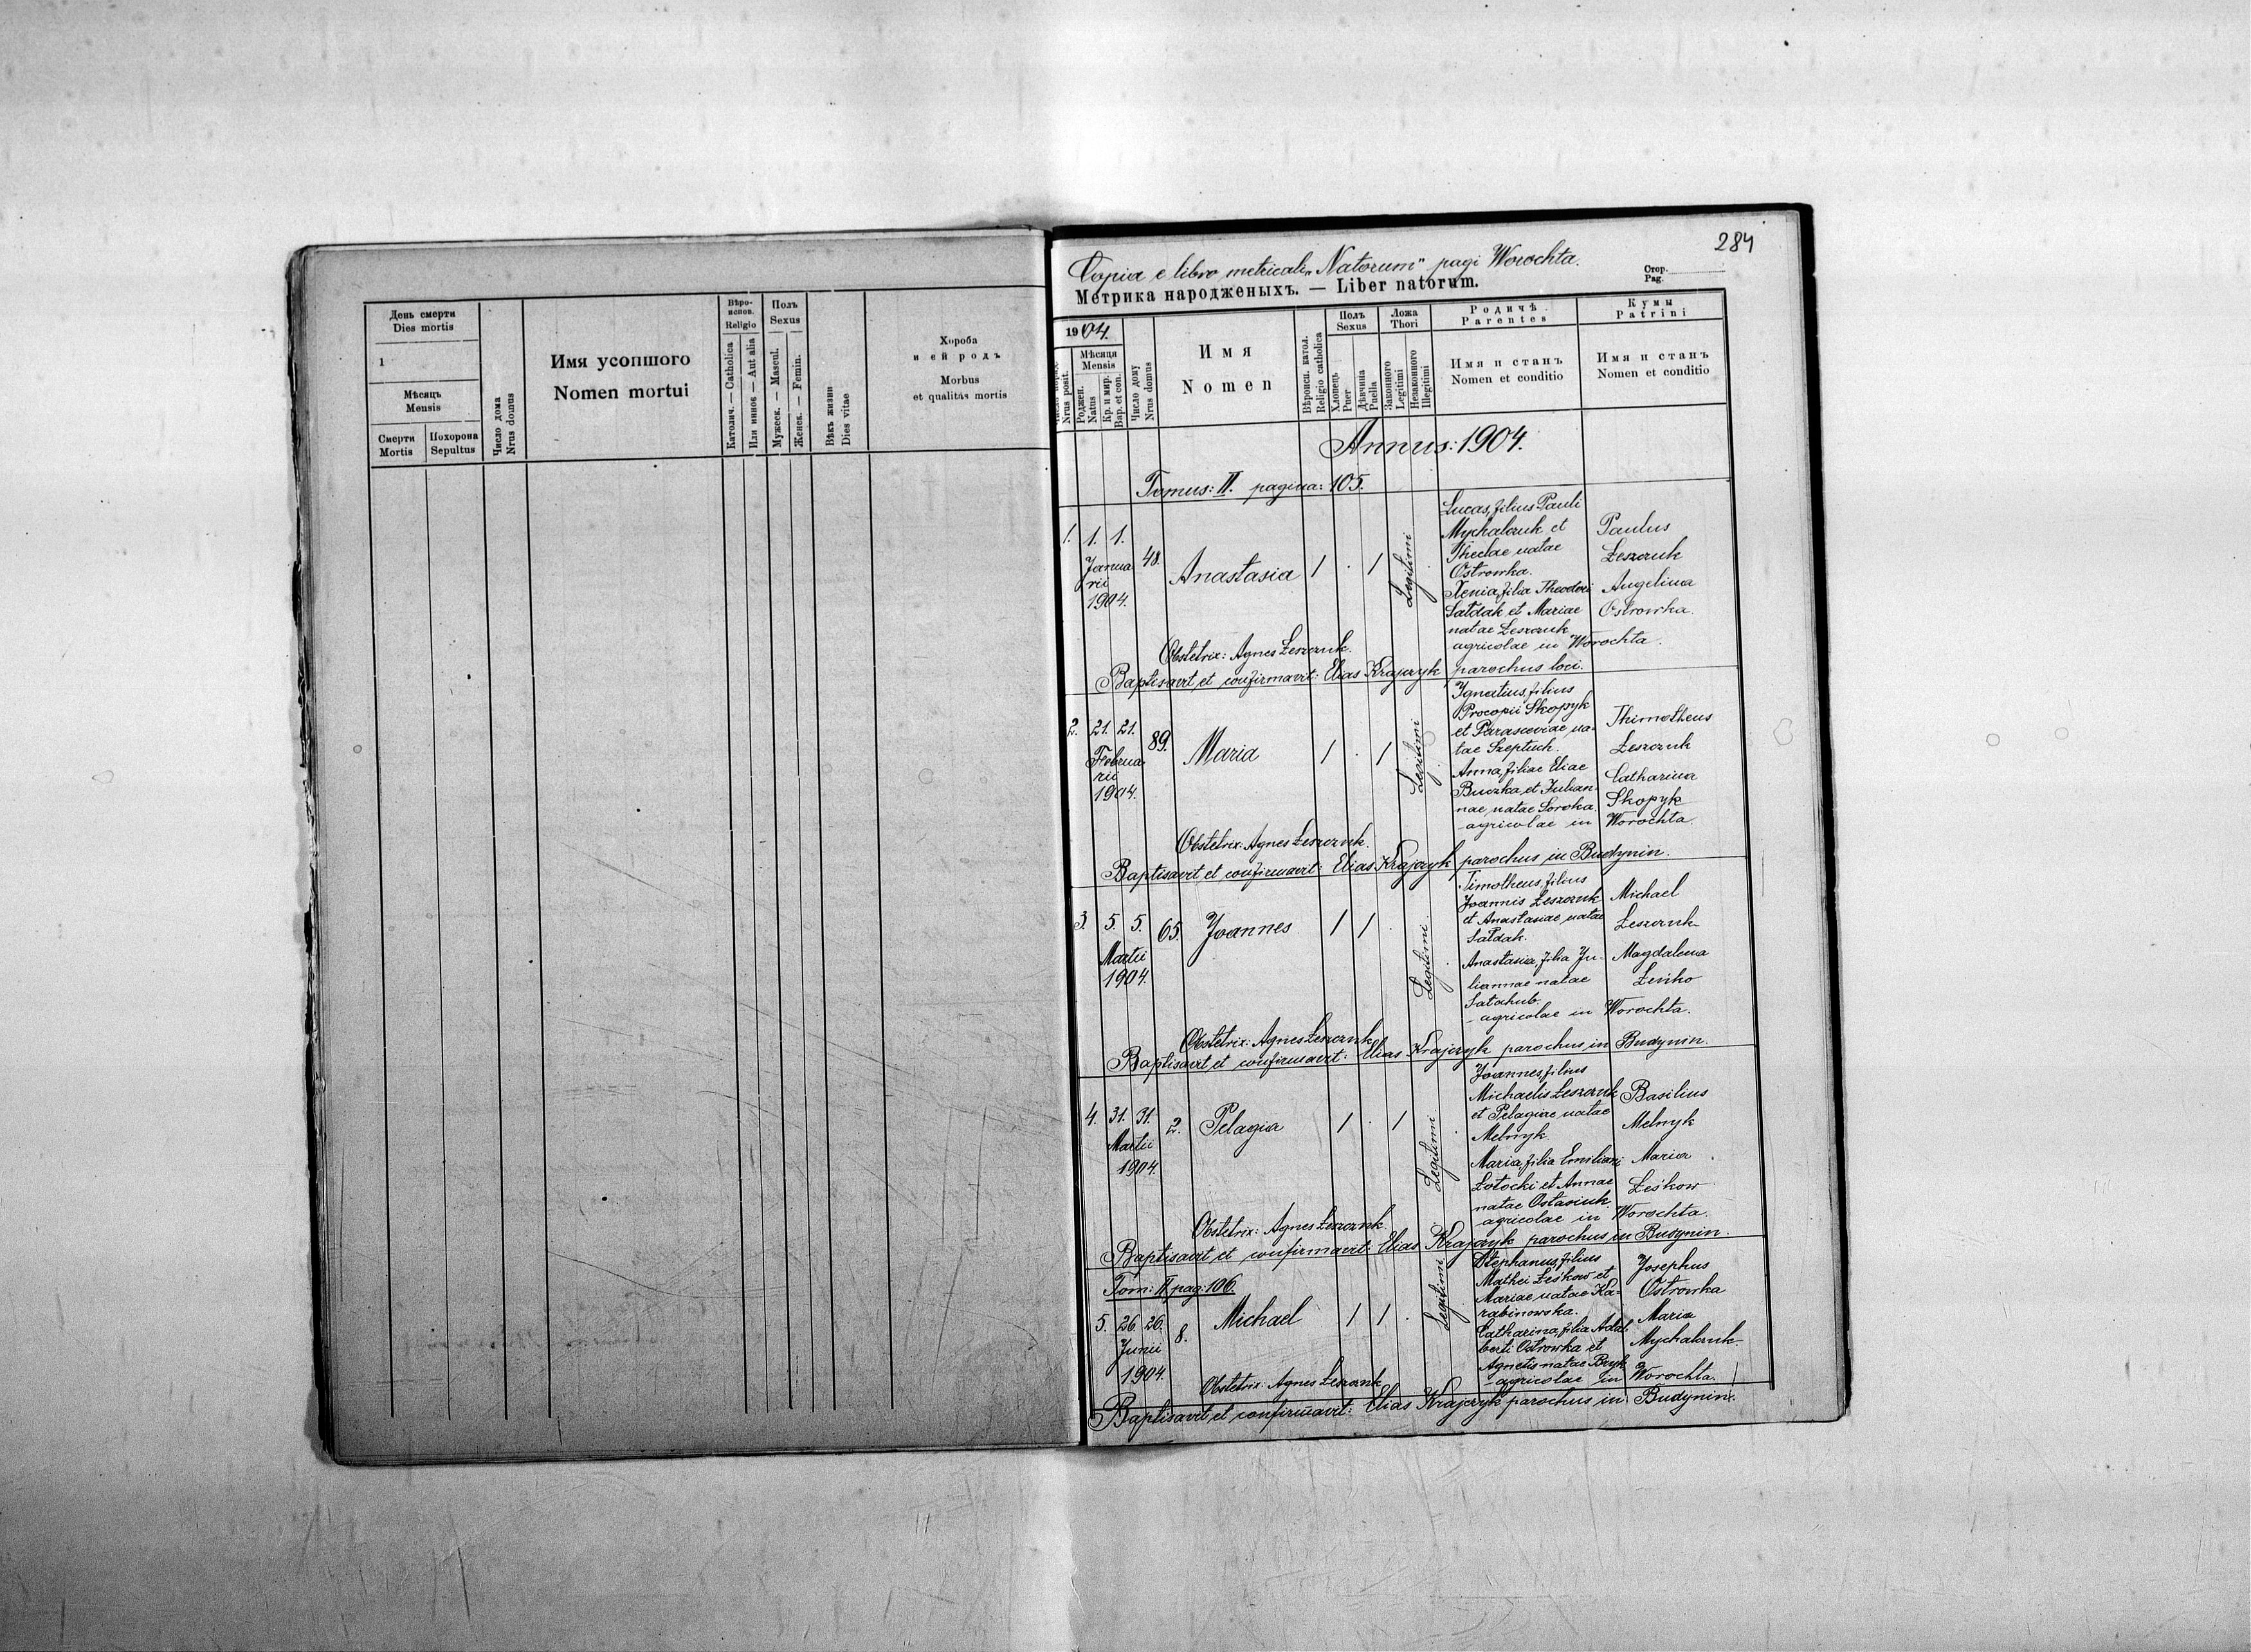 День смерти
Dies mortis
1
Мѣсяць
Mensis
Смерти
Mortis
Похорона
Sepultus
Число дома
Nrus domus
Имя усопшого
Nomen mortui
Вѣро-
испов.
Religio
Католич. — Catholica
Или инное — Aut alia
Полъ
Sexus
Мужеск. — Mascul.
Женск. — Femin.
Вѣкъ жизни
Dies vitae
Хороба
и ей родъ
Morbus
et qualitas mortis
284
Copia e libro metricali „Natorum" pagi Worochta.
Метрика народженыхъ. — Liber natorum.
Стор.
Pag.
1904.
Nrus posit.
Мѣсяця
Mensis
Роджен.
Natus
Кр. и мир.
Bap. et con.
Число дому
Nrus domus
Имя
Nomen
Вѣроисп. катол.
Religio catholica
Полъ
Sexus
Хлопець
Puer
Дѣвчина
Puella
Ложа
Thori
Законного
Legitimi
Незаконного
Illegitimi
Родичѣ
Parentes
Имя и станъ
Nomen et conditio
Кумы
Patrini
Имя и станъ
Nomen et conditio
Annus: 1904.
Tomus: II. pagina: 105.
1. 1. 1.
Janua
rii
1904.
48.
Anastasia
1 . 1
Legitimi
Lucas, filius Pauli
Mychalczuk et
Theclae natae
Ostrowka.
Xenia, filia Theodori
Sałdak et Mariae
natae Leszczuk
agricolae in Worochta.
Paulus
Łeszczuk
Angelina
Ostrowka.
Obstetrix: Agnes Łeszczuk.
Baptisavit et confirmavit: Elias Krajczyk parochus loci.
2. 21. 21.
Februa
rii
1904.
89.
Maria
1 . 1
Legitimi
Ignatius, filius
Procopii Skopyk
et Parasceviae na-
tae Szeptuch.
Anna, filiae Eliae
Buczka et Julian-
nae, natae Soroka.
agricolae in Worochta.
Thimotheus
Łeszczuk
Catharina
Skopyk
Obstetrix: Agnes Łeszczuk.
Baptisavit et confirmavit: Elias Krajczyk parochus in Budynin.
3. 5. 5.
Martii
1904.
65.
Joannes
1 1 .
Legitimi
Timotheus, filius
Joannis Łeszczuk
et Anastasiae natae
Sałdak.
Anastasia, filia Ju-
liannae natae
agricolae in Worochta.
Michael
Łeszczuk
Magdalena
Obstetrix: Agnes Łeszczuk
Baptisavit et confirmavit: Elias Krajczyk parochus in Budynin.
4. 31. 31.
Martii
1904.
2.
Pelagia
1 . 1
Legitimi
Joannes, filius
Michaelis Łeszczuk
et Pelagiae natae
Melnyk.
Maria, filia Emiliani
Łotocki et Annae
natae Ostasiuk.
agricolae in Worochta.
Basilius
Melnyk
Maria
Łeśkow
Obstetrix: Agnes Łeszczuk
Baptisavit et confirmavit: Elias Krajczyk parochus in Budynin.
Tom: II pag: 106.
5. 26. 26.
Junii
1904.
8.
Michael
1 1 .
Legitimi
Stephanus, filius
Mathei Łeśkow et
Mariae natae Ka-
rabinowska.
Catharina, filia Adal-
berti Ostrowka et
Agnetis natae Bryk
agricolae in Worochta.
Josephus
Ostrowka
Maria
Mychalczuk.
Obstetrix: Agnes Łeszczuk
Baptisavit et confirmavit: Elias Krajczyk parochus in Budynin.